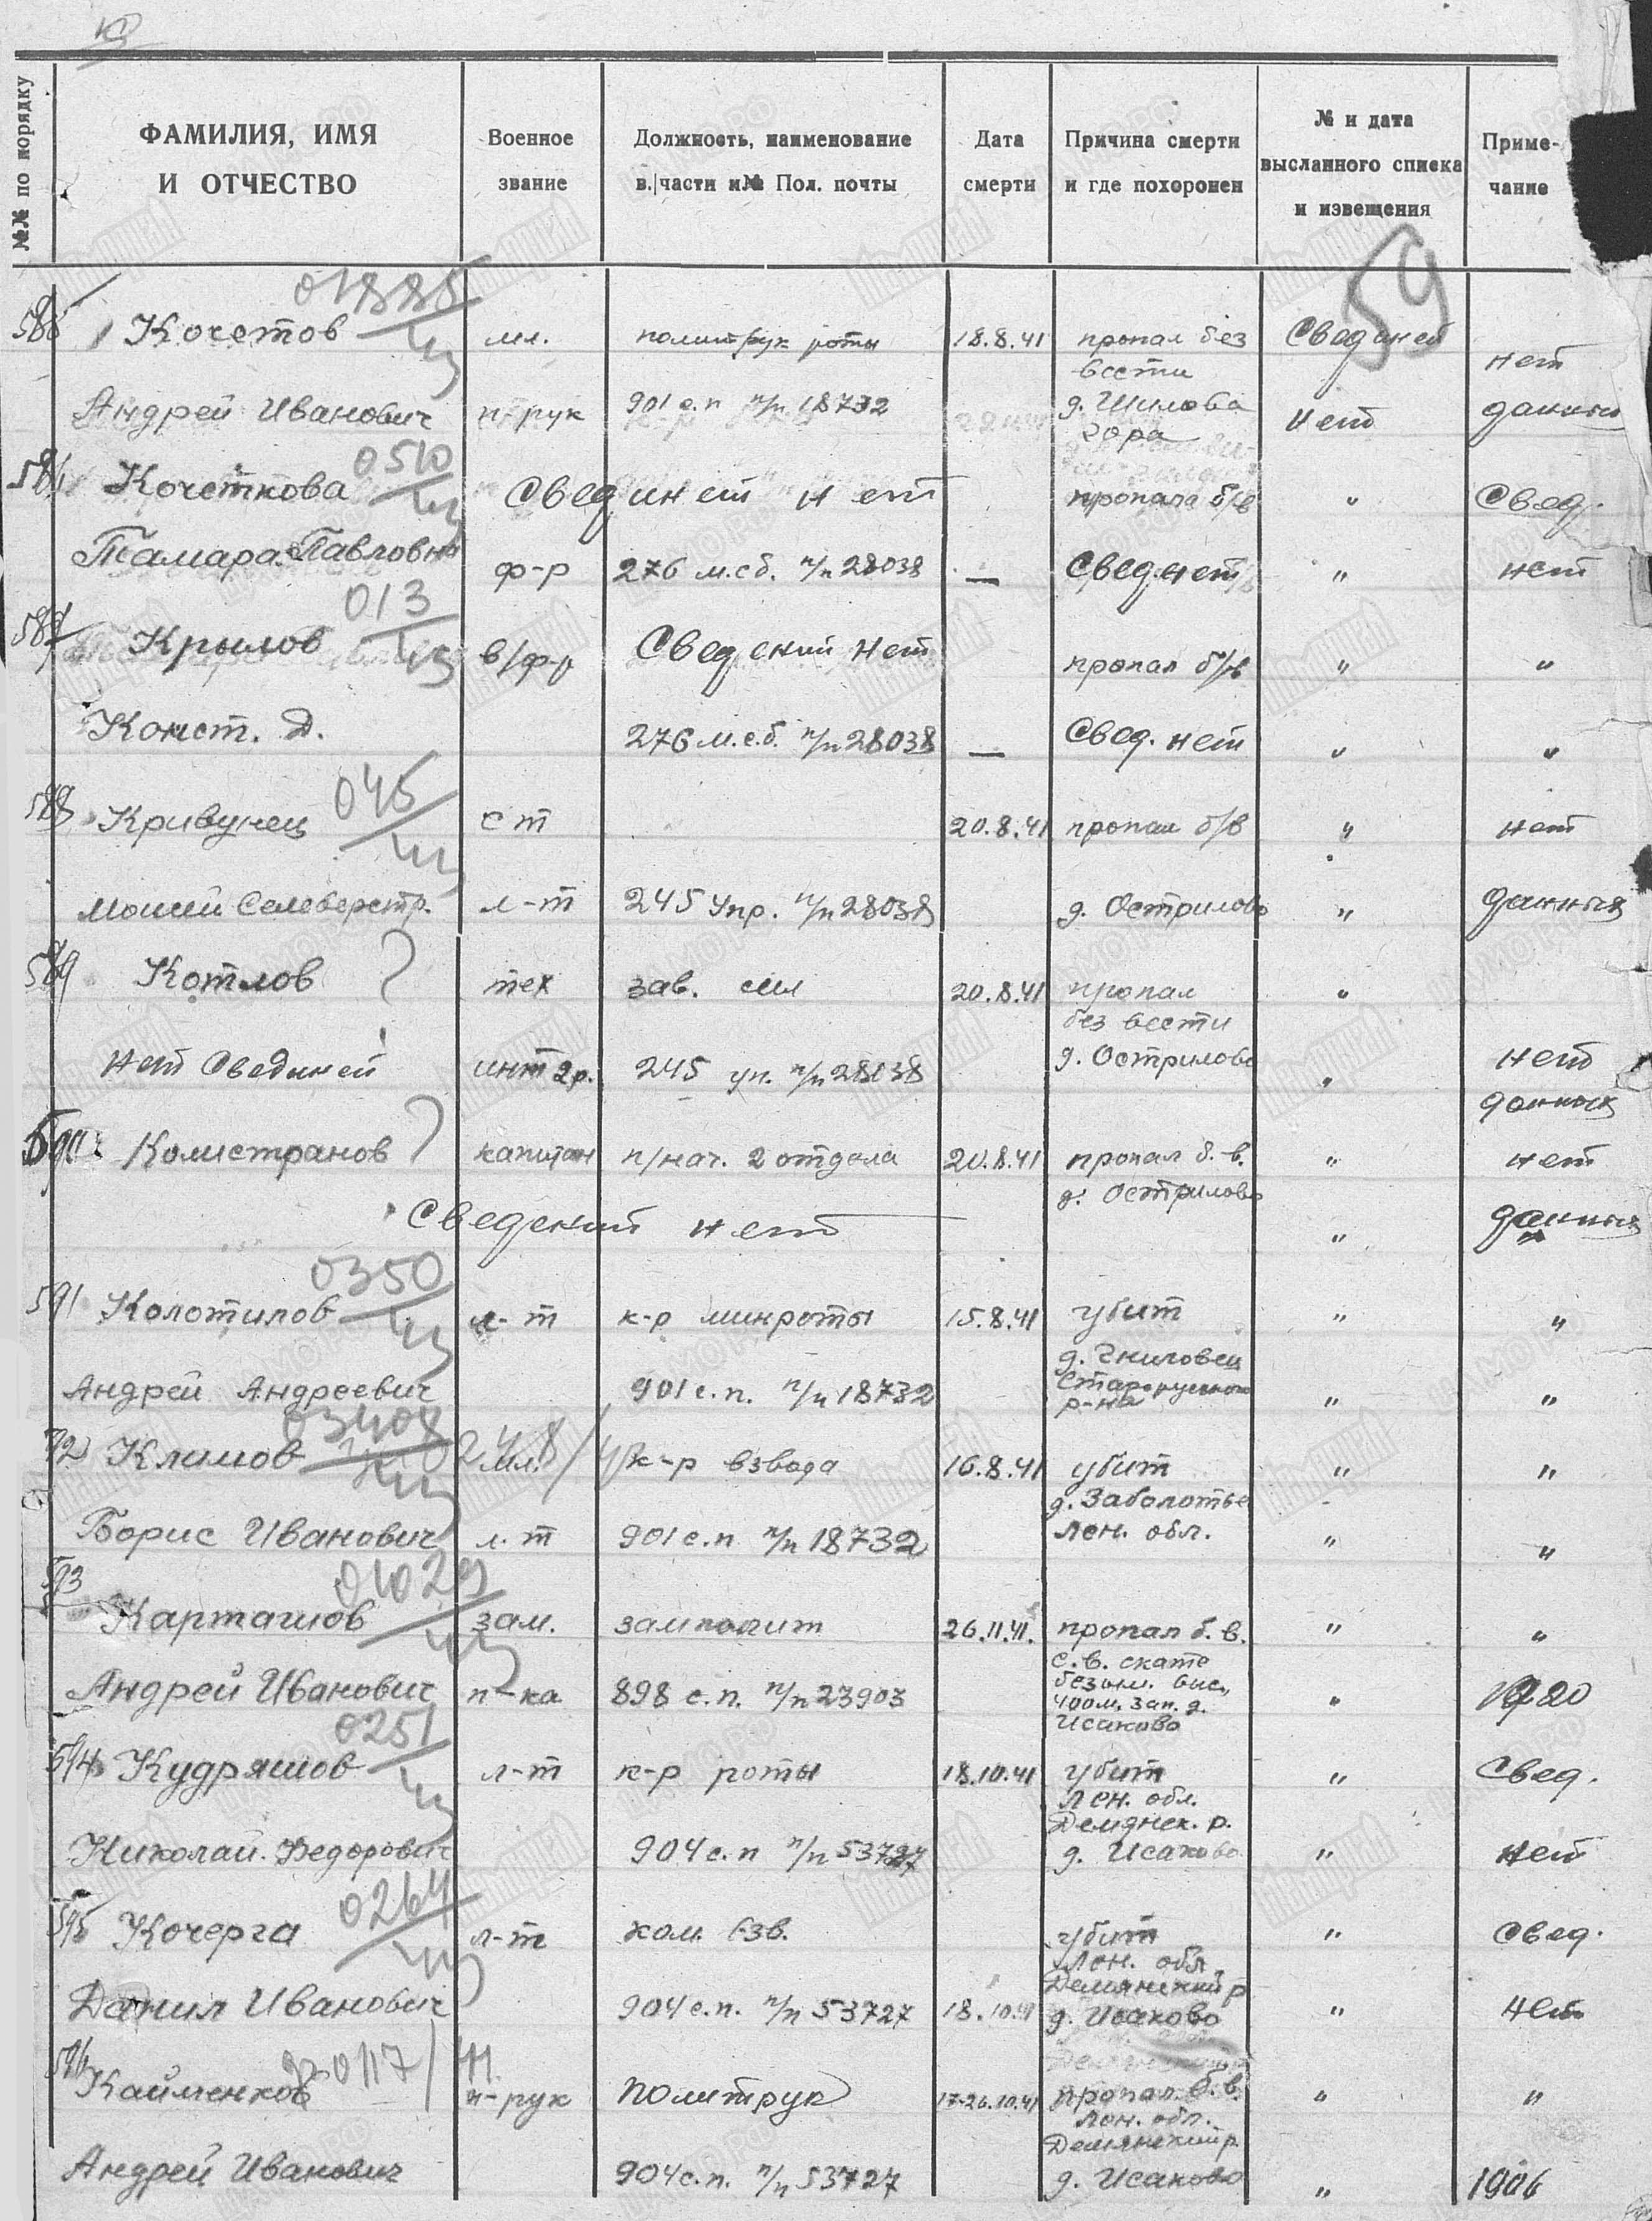 №№ по порядку
ФАМИЛИЯ, ИМЯ
И ОТЧЕСТВО
Военное
звание
Должность, наименование
в. части и № Пол. почты
Дата
смерти
Причина смерти
и где похоронен
№ и дата
высланного списка
и извещения
Приме-
чание
59
01885
585 Кочетов мл. политрук роты 18.8.41 пропал без Сведиией
вести нет
Андрей Иванович п-рук 901 с.п п/п 18732 д. Шилова нет данных
гора
0510
586 Кочеткова Сведиией нет пропала б/в " Свед.
Тамара Павловна ф-р 276 м.с б. п/п 28038 — Свед. нет " нет
013
587 Крылов в/ф-р Сведений нет пропал б/в " "
Конст. Д. 276 м.с.б. п/п 28038 — Свед. нет " "
045
588 Кривунец ст 20.8.41 пропал б/в " нет
Моисей Селеверстр. л-т 245 Упр. п/п 28038 д. Острилово " данных
589 Котлов ? тех зав. 20.8.41 пропал "
без вести
нет Сведиией инт 2р. 245 уп. п/п 28038 д. Острилово " нет
данных
590 Колистранов ? капитан п/нач. 2 отдела 20.8.41 пропал б.в. " нет
д. Острилово
Сведений нет " данных
0350
591 Колотилов л-т к-р минроты 15.8.41 убит " "
д. Гниловец
Андрей Андреевич 901 с.п. п/п 18732 Старорусского " "
р-на
03408
592 Климов мл. к-р взвода 16.8.41 убит " "
д. Заболотье
Борис Иванович л-т 901 с.п п/п 18732 Лен. обл. " "
01029
593 Карташов зам. замполит 26.11.41. пропал б.в. " "
с.в. скате
Андрей Иванович п-ка 898 с.п. п/п 23903 безым. выс. " 1920
400 м. зап. д.
Исаково
0251
594 Кудряшов л-т к-р роты 18.10.41 убит " Свед.
Лен. обл.
Демянск. р.
Николай Федорович 904 с.п п/п 53727 д. Исаково " нет
0264
595 Кочерга л-т ком. взв. убит " Свед.
Лен. обл.
Демянский р
Данил Иванович 904 с.п. п/п 53727 18.10.41 д. Исаково " нет
0117
596 Кайменков п-рук политрук 17-26.10.41 пропал б.в. " "
Лен. обл.
Демянский р
Андрей Иванович 904 с.п. п/п 53727 д. Исаково " 1906